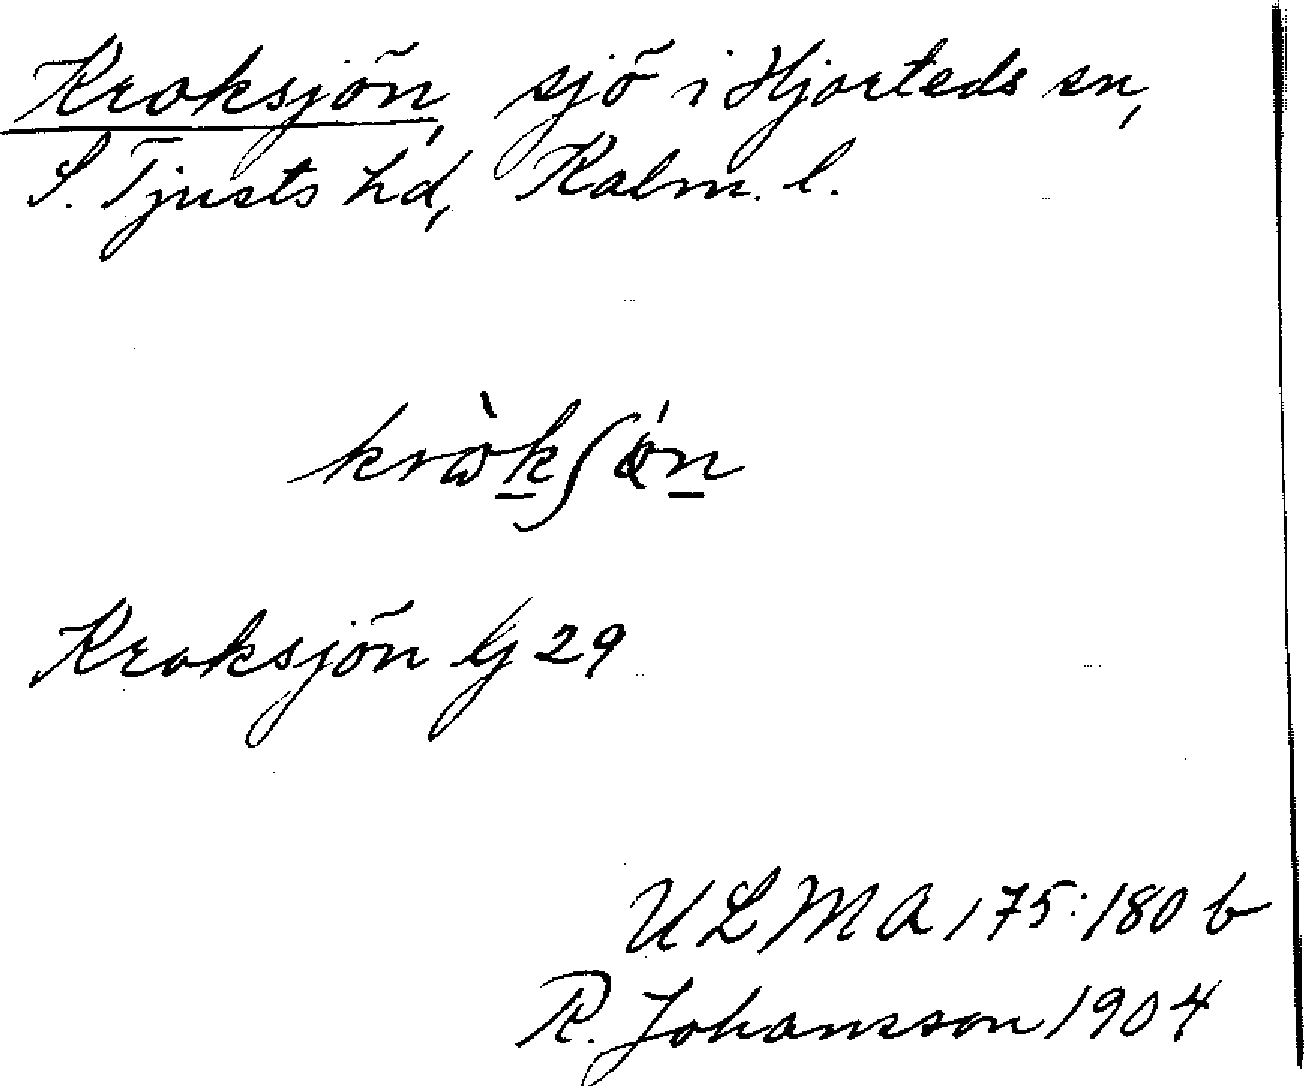 Kroksjön, sjö i Hjorteds sn,
S. Tjusts hd, Kalm. l.
Kroksjön lj 29
ULMA 175:180 b
R. Johansson 1904